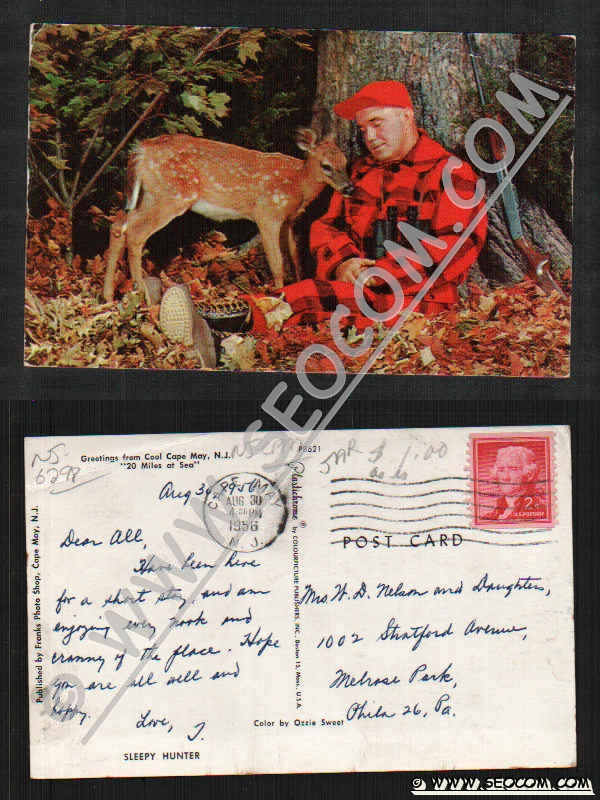 WWW.SEOCOM.COM
NJ
6298
Greetings from Cool Cape May, N.J.
"20 Miles at Sea"
P8621
$ 1.00
Aug 30, 1956
CAPE MAY
AUG 30
1956
N. J.
2¢
U.S. POSTAGE
POST CARD
Dear All,
Have been here
for a short stay, and am
enjoying every nook and
cranny of the place. Hope
you are all well and
happy.
Love, J.
Published by Franks Photo Shop, Cape May, N.J.
Plastichrome ®
by COLOURPICTURE PUBLISHERS, INC., Boston 15, Mass. U.S.A.
Mrs. W. D. Nelson and Daughters,
1002 Stratford Avenue,
Melrose Park,
Phila 26, Pa.
Color by Ozzie Sweet
SLEEPY HUNTER
© WWW.SEOCOM.COM